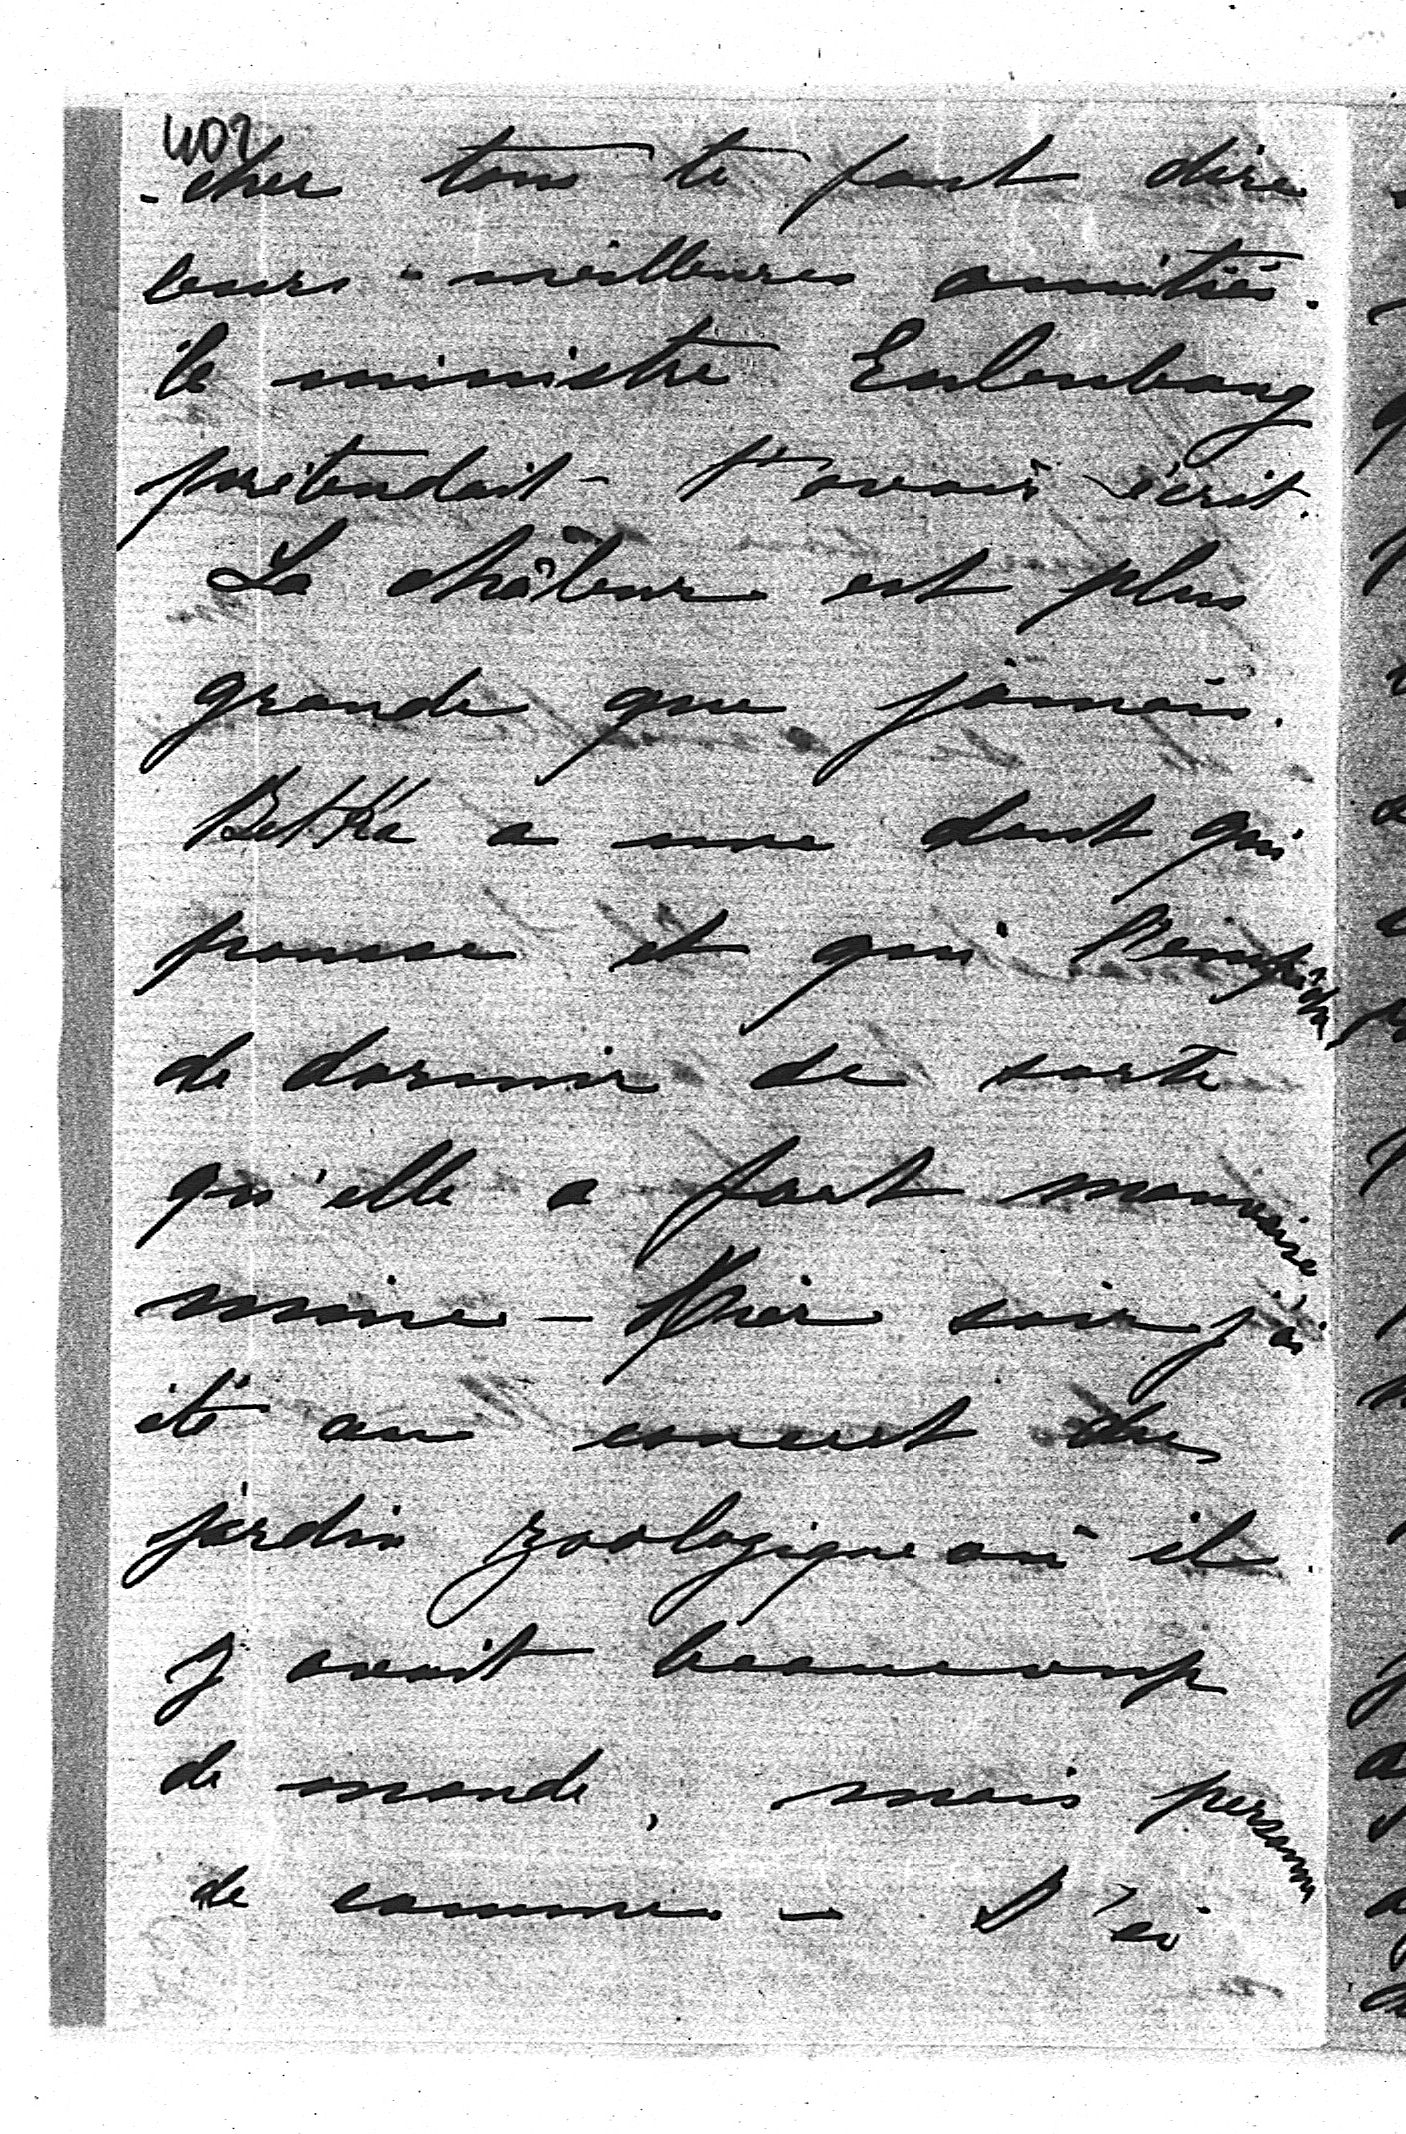 402
-cher tous te font dire
leurs meilleures amitiés.
le ministre Eulenbourg
prétendait t'avoir écrit.
La châleur est plus
grande que jamais.
Betka a une dent qui
pousse et qui l'empêche
de dormir de sorte
qu'elle a fort mauvaise
mine – Hier soir j'ai
été au concert du
jardin zoologique où il
y avait beaucoup
de monde, mais personne
de connu – J'ai